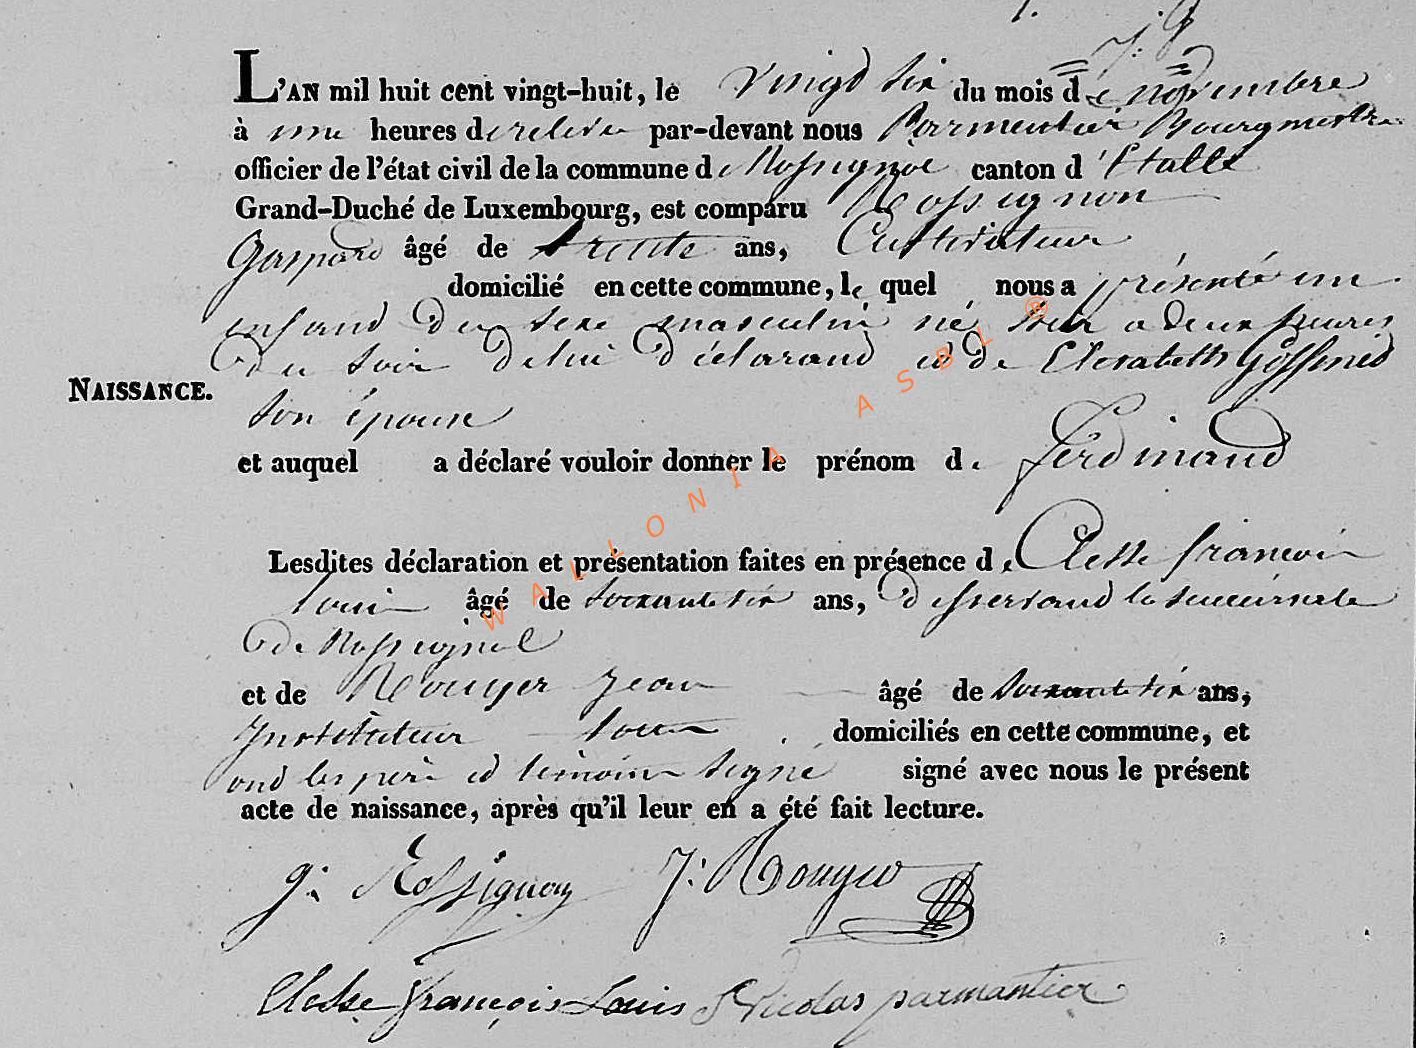 L'AN mil huit cent vingt-huit, le vingd six du mois de novembre
à une heures de relevée par-devant nous Parmentier Bourgmestre
officier de l'état civil de la commune de Rossignol canton d'Etalle
Grand-Duché de Luxembourg, est comparu Rossignon
Gaspard âgé de trente ans, Cultivateur
domicilié en cette commune, le quel nous a présenté un
enfand du sexe masculin né hier a deux heures
du soir de lui déclarand et de Elisabeth Goffined
NAISSANCE.
son épouse
et auquel a déclaré vouloir donner le prénom de ferdinand
Lesdites déclaration et présentation faites en présence de Clesse francois
louis âgé de soixante six ans, desservand la succursale
de Rossignol
et de Rouyer jean âgé de soixante six ans,
instituteur tous domiciliés en cette commune, et
ond les père et témoins signé signé avec nous le présent
acte de naissance, après qu'il leur en a été fait lecture.
g: Rossignon J: Rouyer
Clesse françois Louis Nicolas parmantier
WALLONIA ASBL ®